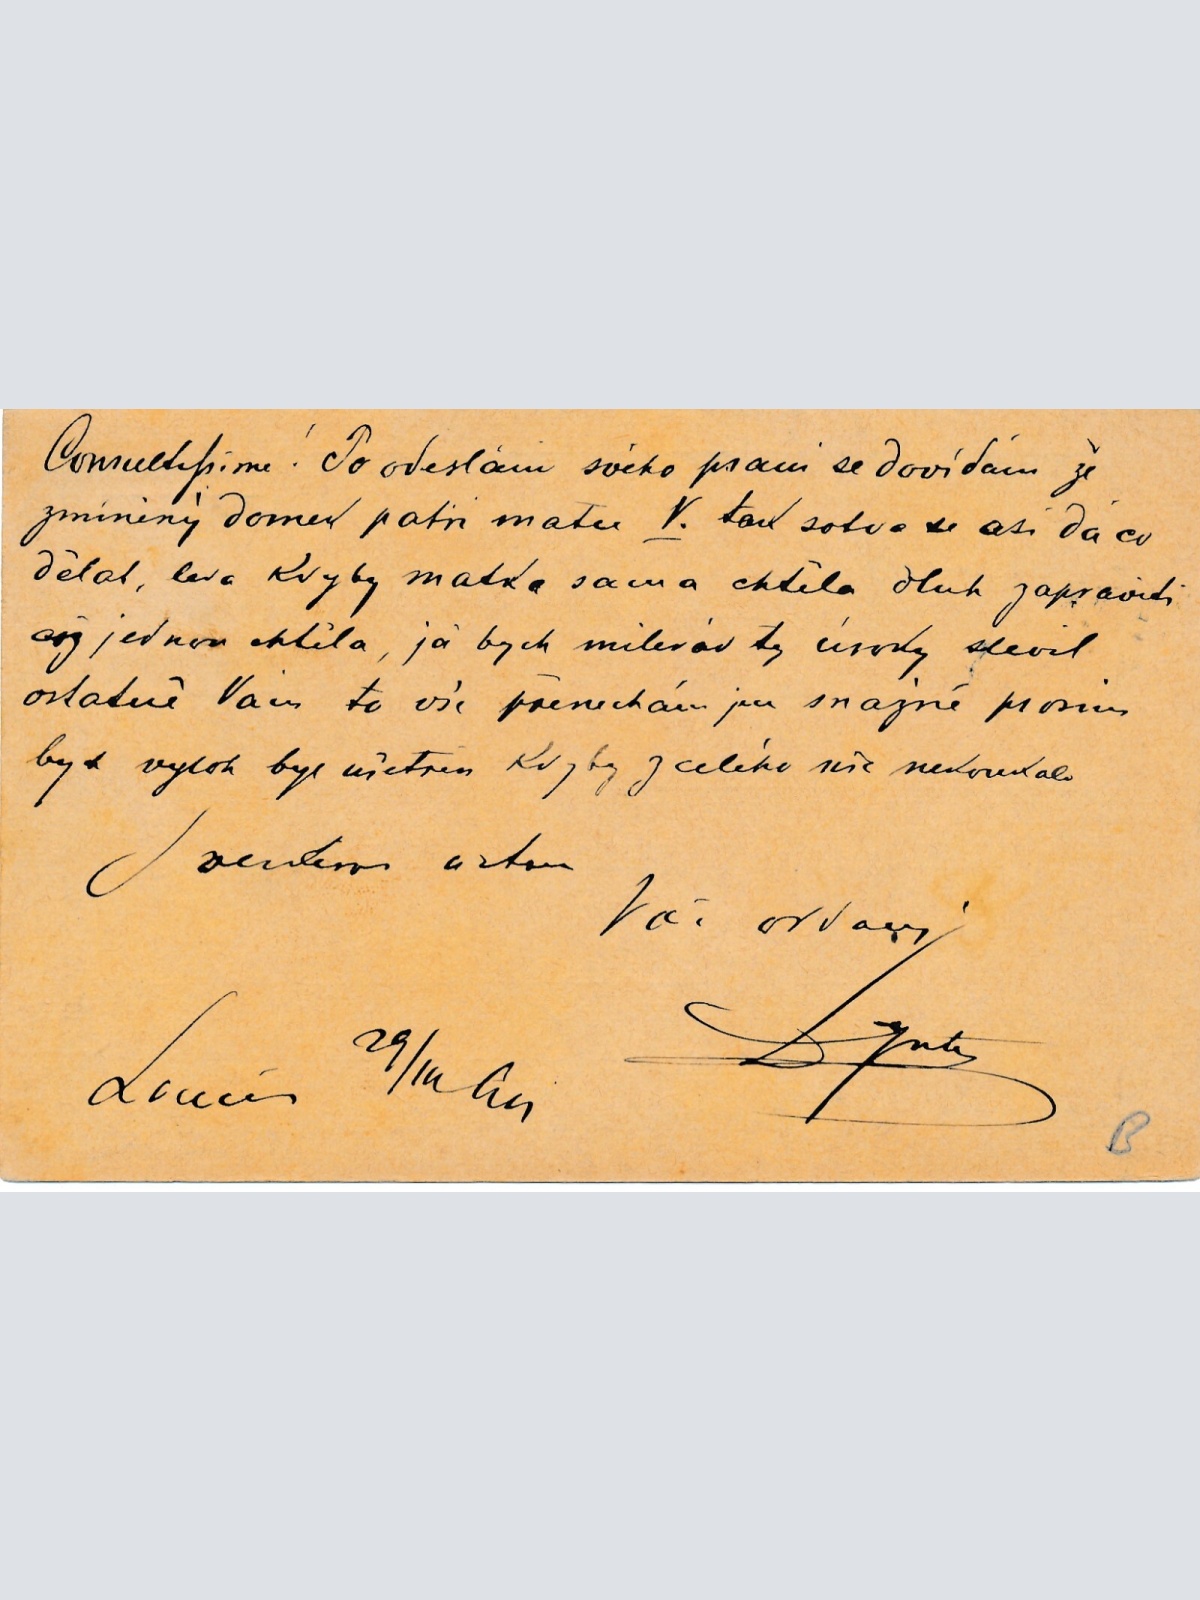 Consultissime! Po odeslání svého psaní se dovídám že
zmíněný domek patří matce V. tak sotva se asi dá co
dělat, leda kdyby matka sama chtěla dluh zapraviti
což jednou chtěla, já bych milerád ty úroky slevil
ostatně Vám to vše přenechám jen snažně prosím
bych výloh byl ušetřen kdyby z celého nic nekoukalo
S úctou
Váš oddaný
29/III
B